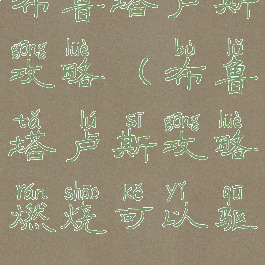 布鲁塔卢斯
gōng lüè bù lǔ
攻略（布鲁
tǎ lú sī gōng lüè
塔卢斯攻略
rán shāo kě yǐ qū
燃烧可以驱